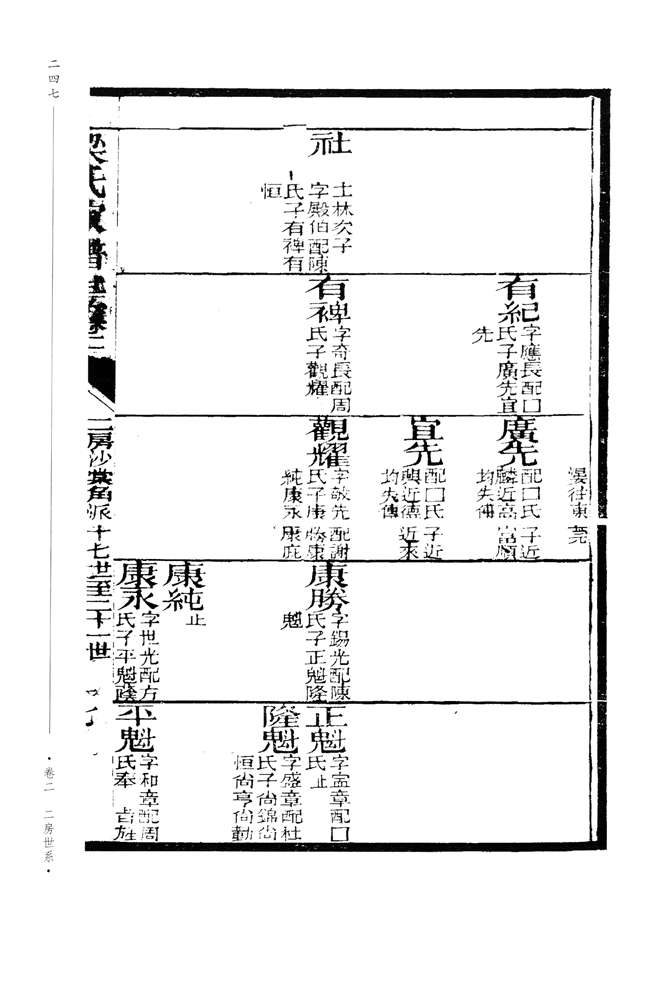 社
土林次子
字殿伯配陳
氏子有裨有
恒
有紀
字應長配口
氏子廣先宜
先
有裨
字奇長配周
氏子觀耀
往東莞
廣先
配口氏子近
麟近高富順
均失傳
宜先
配口氏子近
興近德近來
均失傳
觀耀
字敏先配謝
氏子康勝康
純康永康庇
康勝
字錫光配陳
氏子正魁隆
魁
康純
止
康永
字世光配方
氏子平魁
正魁
字孟章配口
氏止
隆魁
字盛章配杜
氏子尚錦尚
恒尚亨尚勤
平魁
字和章配周
氏奉旨旌
梁氏家譜
二房沙棠角派十七世至二十一世
二四七
·卷二 二房世系·